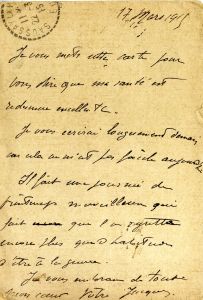 17 Mars 1915
Je vous mets cette carte pour
vous dire que ma santé est
redevenue excellente.
Je vous écrirai longuement demain,
car cela ne m'est pas facile aujourd'hui
Il fait une journée de
printemps merveilleuse qui
fait que l'on regrette
encore plus que d'habitude
d'être à la guerre.
Je vous embrasse de tout
mon cœur Votre Jacques